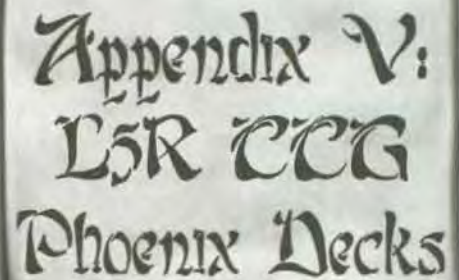 Appendix V:
L5R CCG
Phoenix Decks